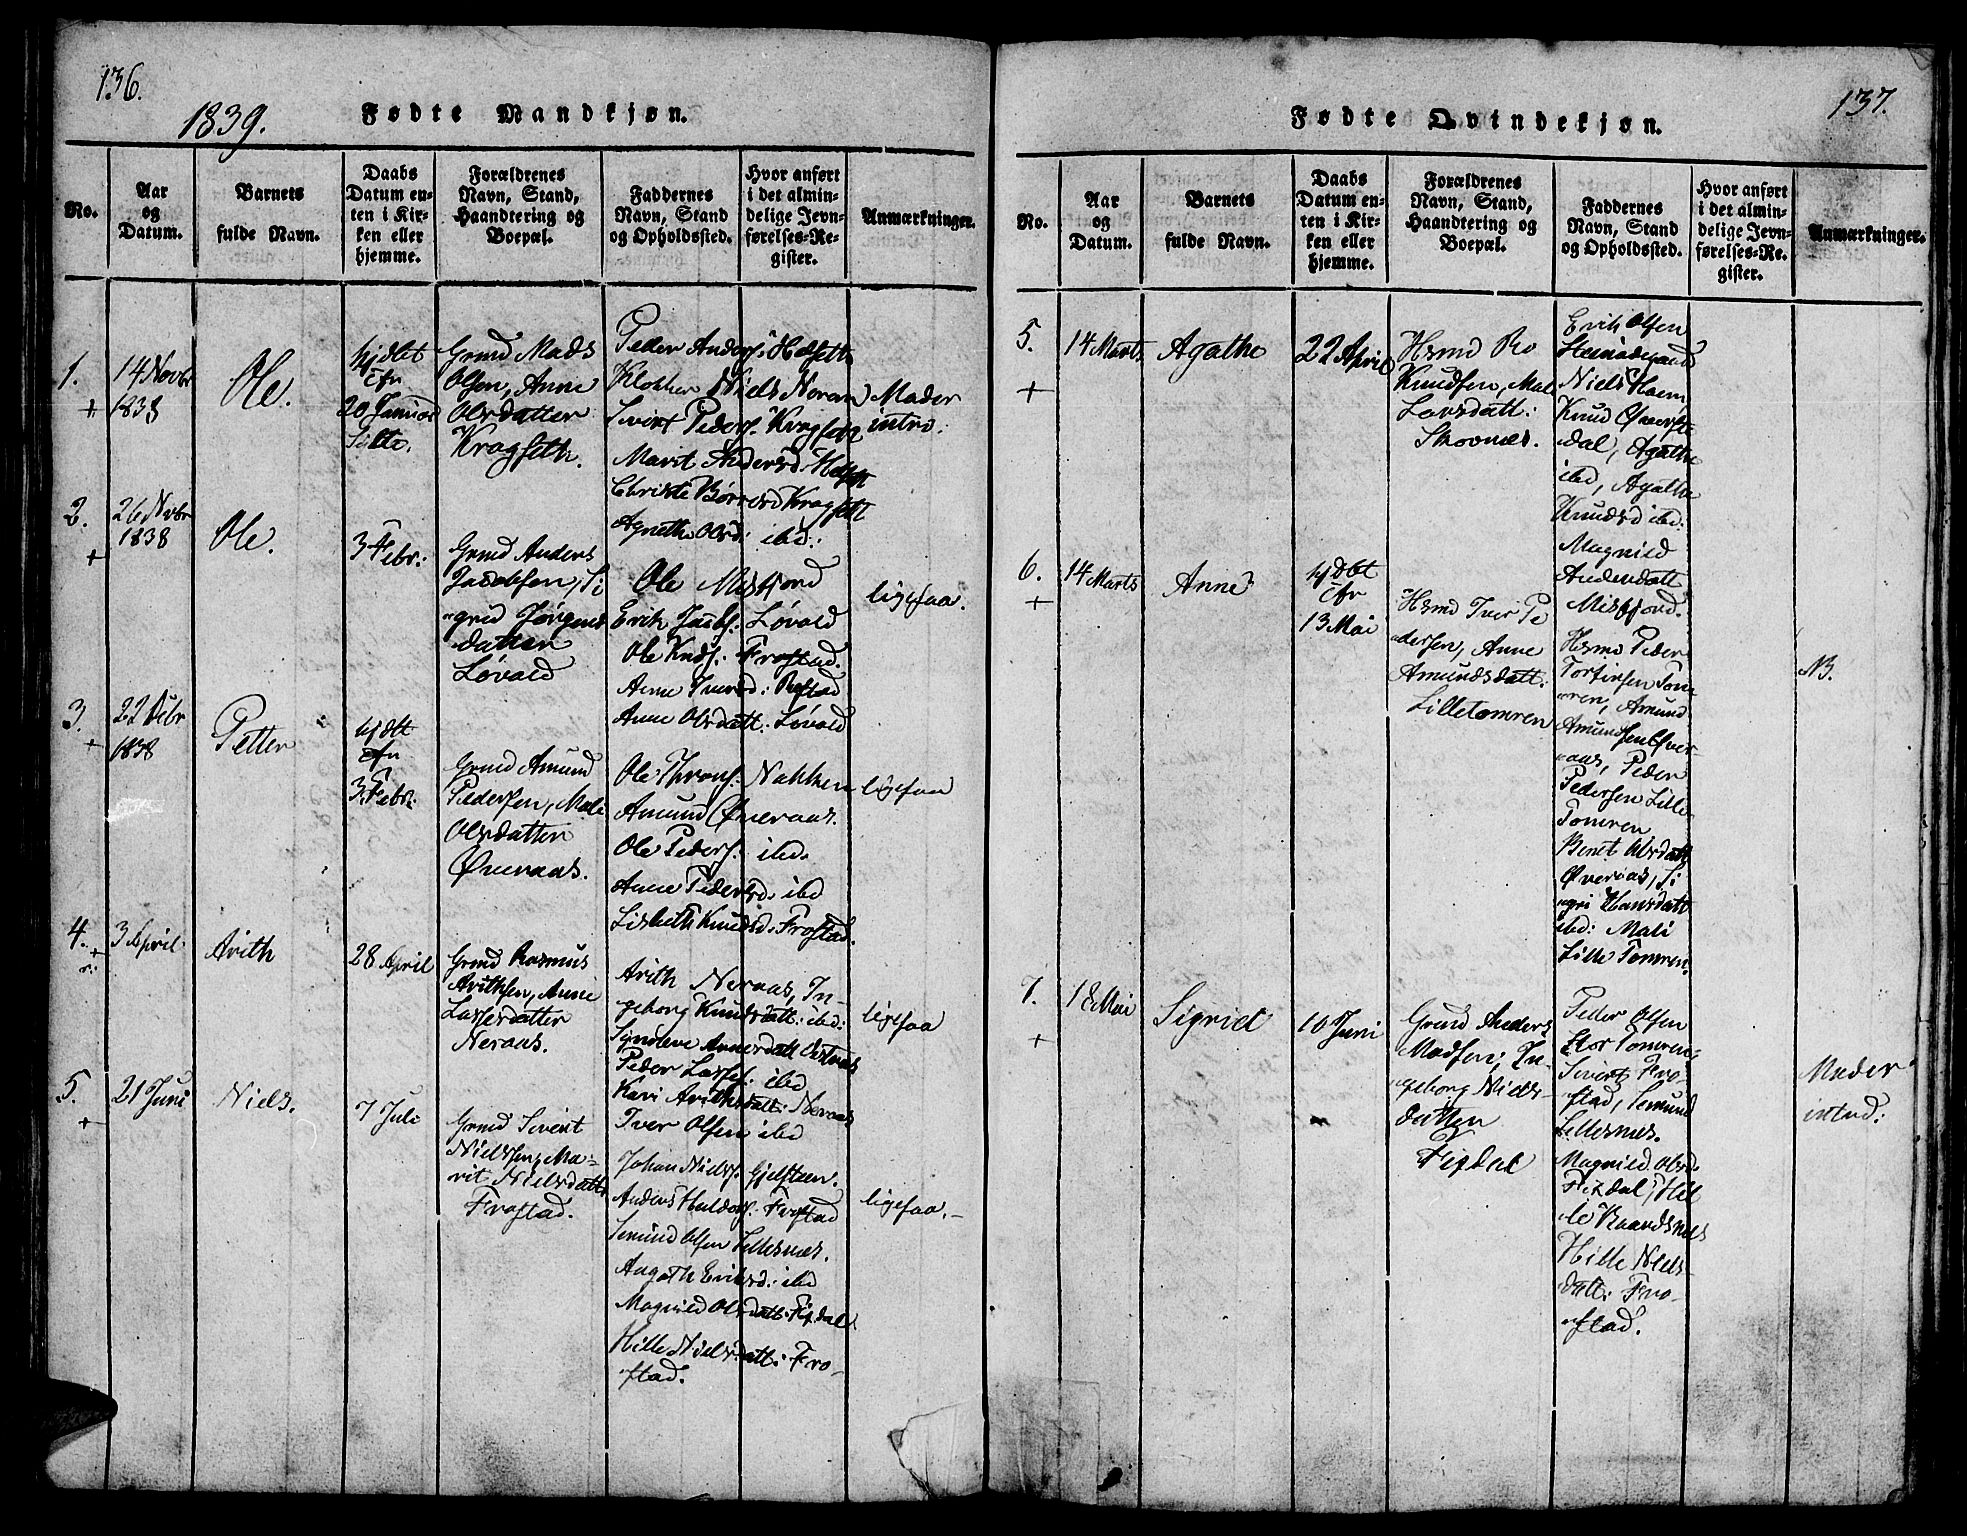 136.
1839.
Fødte Mandkjøn.
No.
Aar
og
Datum.
Barnets
fulde Navn.
Daabs
Datum en-
ten i Kir-
ken eller
hjemme.
Forældrenes
Navn, Stand,
Haandtering og
Boepæl.
Faddernes
Navn, Stand
og Opholdssted.
Hvor anført
i det almin-
delige Jevn-
førelses-Re-
gister.
Anmærkninger.
1.
+
14 Novbr
1838
Ole.
hjdbt
cfr
20 Januar
Grmd Mads
Olsen, Anne
Olsdatter
Kragseth.
Peder Anders:
Klokker Niels
Sivert Peders: Kragseth
Marit Andersd:
Christe Kragsett
Agnethe Olsd: ibd:
Mader
intro:
2.
+
26 Nvbr
1838
Ole.
3 Febr:
Grmd Anders
Jacobsen, Si
"grid Jørgens
datter
Løvold
Ole Misfjord
Erik Jacobs: Løvold
Ole Knds: Frostad.
Anne Iversd:
Anne Olsdatt: Løvold
ligesaa.
3.
+
22 Debr
1838
Petter
hjdbt
cfr
3 Febr:
Grmd Amund
Pedersen, Mali
Olsdatter
Øveraas.
Ole Nakken
Amund Øveraas.
Ole Peders: ibd.
Anne Pedersd: ibd
Lisbeth Knudsd: Frostad.
ligesaa
4.
+
3 April
Arith
28 April
Grmd Rasmus
Arithsen, Anne
Lassesdatter
Neraas.
Arith Neraas, In-
geborg Knudsdatt: ibd:
Synneve
Peder Lasses: ibd
Kari Arithsdatt: Neraas
Iver Olsen ibd
ligesaa
5.
+
21 Juni
Niels.
7 Juli
Grmd Sivert
Nielssen, Ma-
rit Nielsdatt:
Frostad.
Johan Niels: Gjelsteen.
Anders Haldors: Frostad
Semund Olsen Lillesnæs.
Eriksd: ibd
Magnild Olsdatt: Fixdal
Hille Nielsdatt: Fro-
"stad.
ligesaa.-
137.
Fødte Qvindekjøn.
No.
Aar
og
Datum.
Barnets
fulde Navn.
Daabs
Datum en-
ten i Kir-
ken eller
hjemme.
Forældrenes
Navn, Stand,
Haandtering og
Boepæl.
Faddernes
Navn, Stand
og Opholdssted.
Hvor anført
i det almin-
delige Jevn-
førelses-Re-
gister.
Anmærkninger.
5.
+
14 Marts
Agathe
22 April
Hsmd
Knudsen,
Larsdatt:
Skovnæs.
Erik Olsen
Niels
Knud
dal, Agathe
ibd, Agathe
Knudsd ibd.
Magnild
Andersdatt
Misfjord.
6.
+
14 Marts
Anne
hjdbt
cfr
13 Mai
Hsmd Iver Pe
"dersen, Anne
Amundsdatt:
Lilletomren
Hsmd Peder
Tom
"ren, Amund
Amundsen Øver
"aas, Peder
Pedersen Lille
Tomren
Beret Olsdatt
Øveraas, Si
"gri Hansdatt
ibd: Mali
Lille Tomren.
NB.
7.
+
18 Mai
Sigrid
10 Juni
Grmd Anders
Madsen, In
"geborg Niels-
datter
Fixdal
Peder Olsen
Stor Tomren,
Sivert Fro-
stad, Semund
Lillesnæs.
Magnild Olsd.
Fixdal, Hil
le Baardsnæs
Hille Niels-
datt: Fro-
"stad.
Mader
introd: